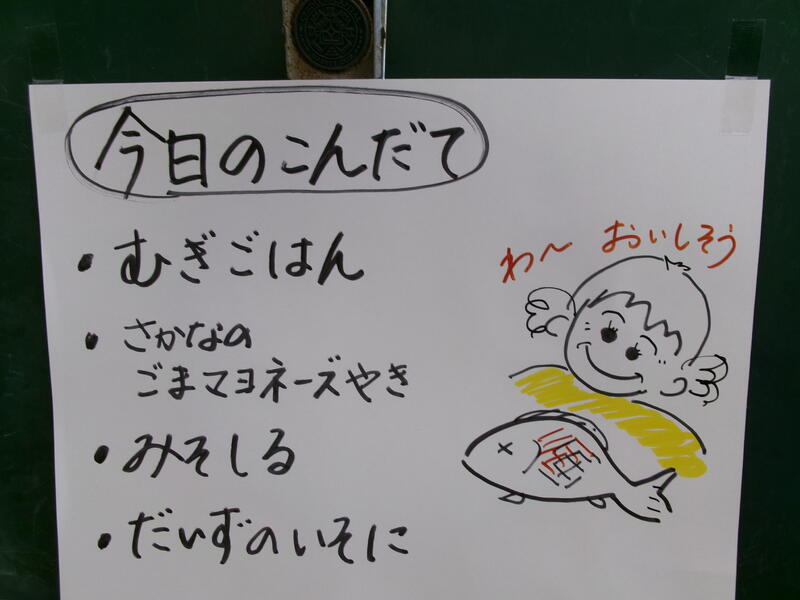 今日のこんだて
・むぎごはん
・さかなの
ごまマヨネーズやき
・みそしる
・だいずのいそに
わ〜 おいしそう